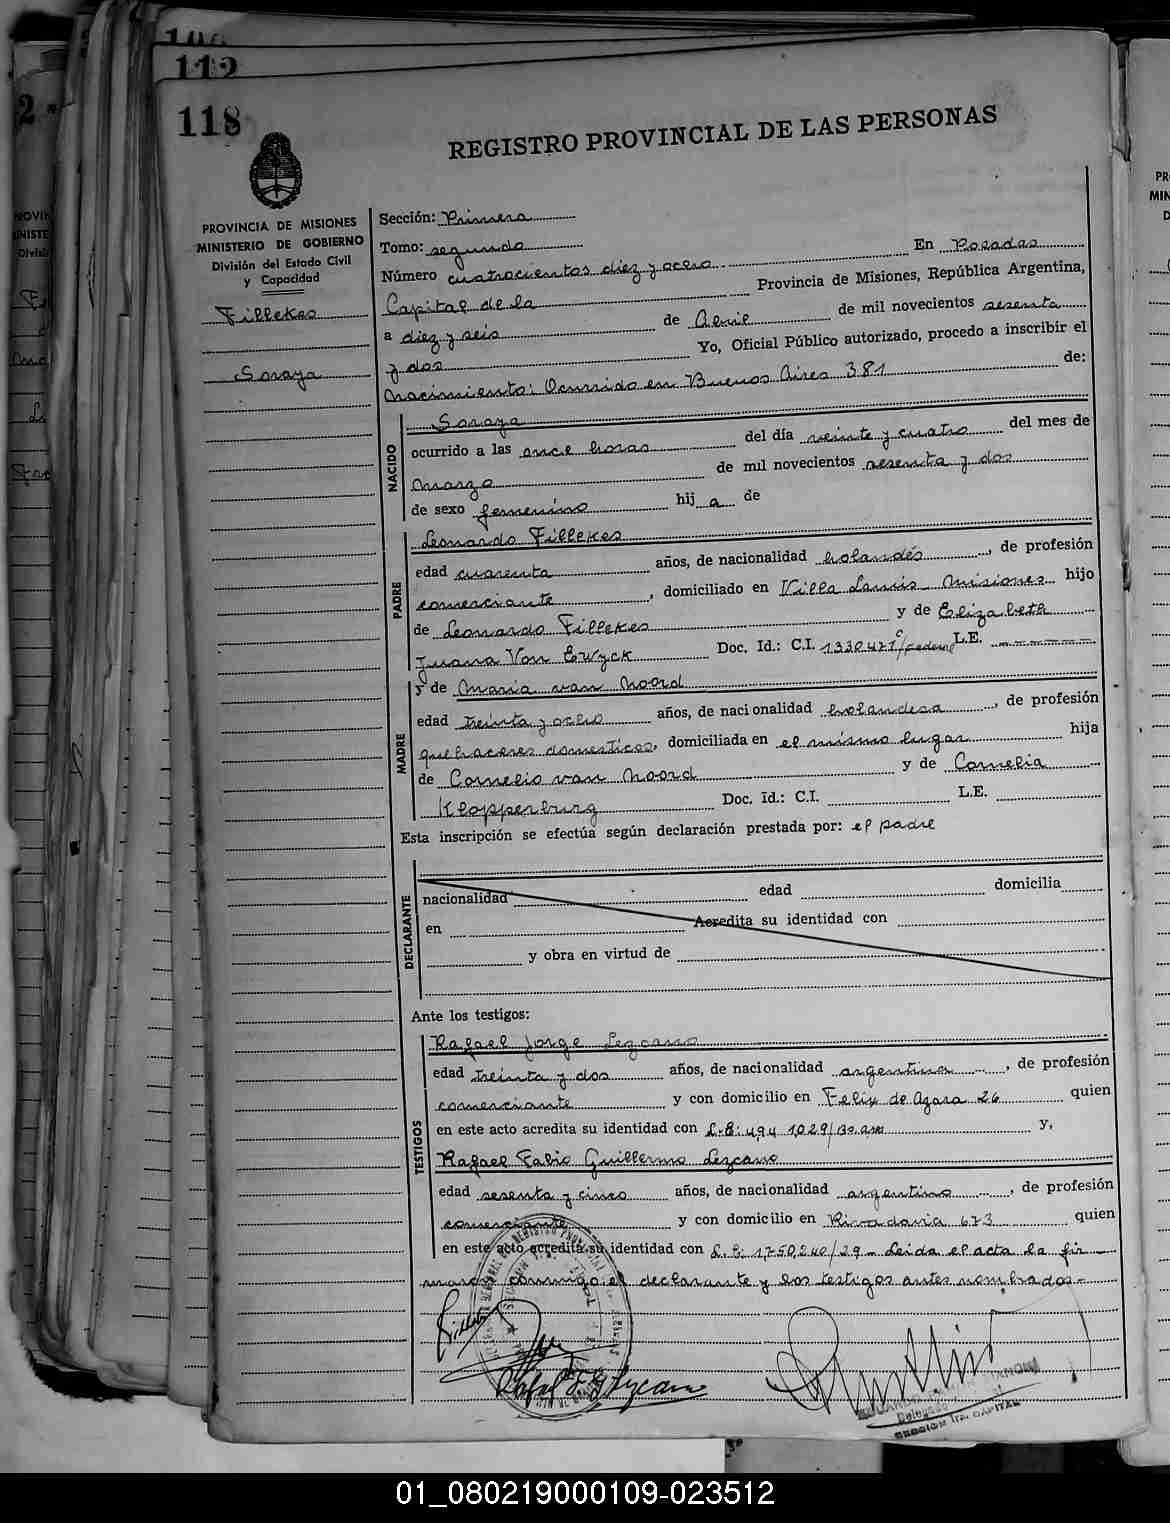 106
112
118
REGISTRO PROVINCIAL DE LAS PERSONAS
PROVINCIA DE MISIONES
MINISTERIO DE GOBIERNO
División del Estado Civil
y Capacidad
Fillekes
Soraya
Sección: Primera
Tomo: segundo
Número cuatrocientos diez y ocho En Posadas
Capital de la Provincia de Misiones, República Argentina,
a diez y seis de Abril de mil novecientos sesenta
y dos Yo, Oficial Público autorizado, procedo a inscribir el
Nacimiento: Ocurrido en Buenos Aires 381 de:
NACIDO
Soraya
ocurrido a las once horas del día veinte y cuatro del mes de
Marzo de mil novecientos sesenta y dos
de sexo femenino hij a de
PADRE
Leonardo Fillekes
edad cuarenta años, de nacionalidad holandés, de profesión
comerciante, domiciliado en Villa Lanús Misiones hijo
de Leonardo Fillekes y de Elizabeth
Juana Van Ewyck Doc. Id.: C.I. 1330471 L.E.
MADRE
y de Maria van Noord
edad treinta y ocho años, de nacionalidad holandesa, de profesión
quehaceres domesticos, domiciliada en el mismo lugar hija
de Cornelio van Noord y de Cornelia
Kloppenburg Doc. Id.: C.I. L.E.
Esta inscripción se efectúa según declaración prestada por: el padre
DECLARANTE
nacionalidad edad domicilia
en Acredita su identidad con
y obra en virtud de
Ante los testigos:
TESTIGOS
Rafael Jorge Lezcano
edad treinta y dos años, de nacionalidad argentina, de profesión
comerciante y con domicilio en Felix de Azara 26 quien
en este acto acredita su identidad con L.E: 494 1029/ y,
Rafael Fabio Guillermo Lezcano
edad sesenta y cinco años, de nacionalidad argentino, de profesión
comerciante y con domicilio en Rivadavia 673 quien
en este acto acredita su identidad con L.E: 1.750.240/29 - Leida el acta la fir-
man conmigo el declarante y los testigos antes nombrados-
SECCION 1ra. CAPITAL
01_080219000109-023512